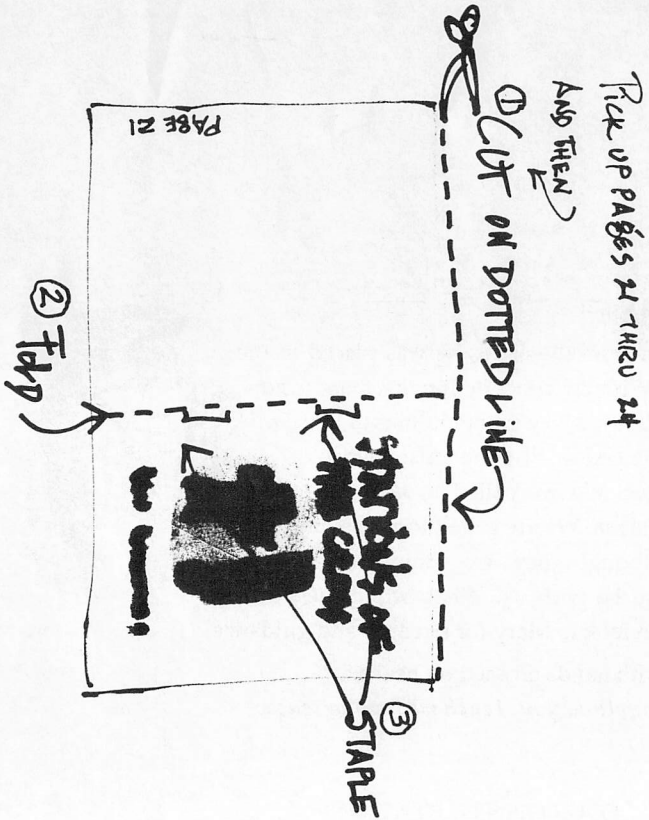 PICK UP PAGES 21 THRU 24
AND THEN
① CUT ON DOTTED LINE
PAGE 21
② FOLD
STATIONS OF
THE
③
STAPLE